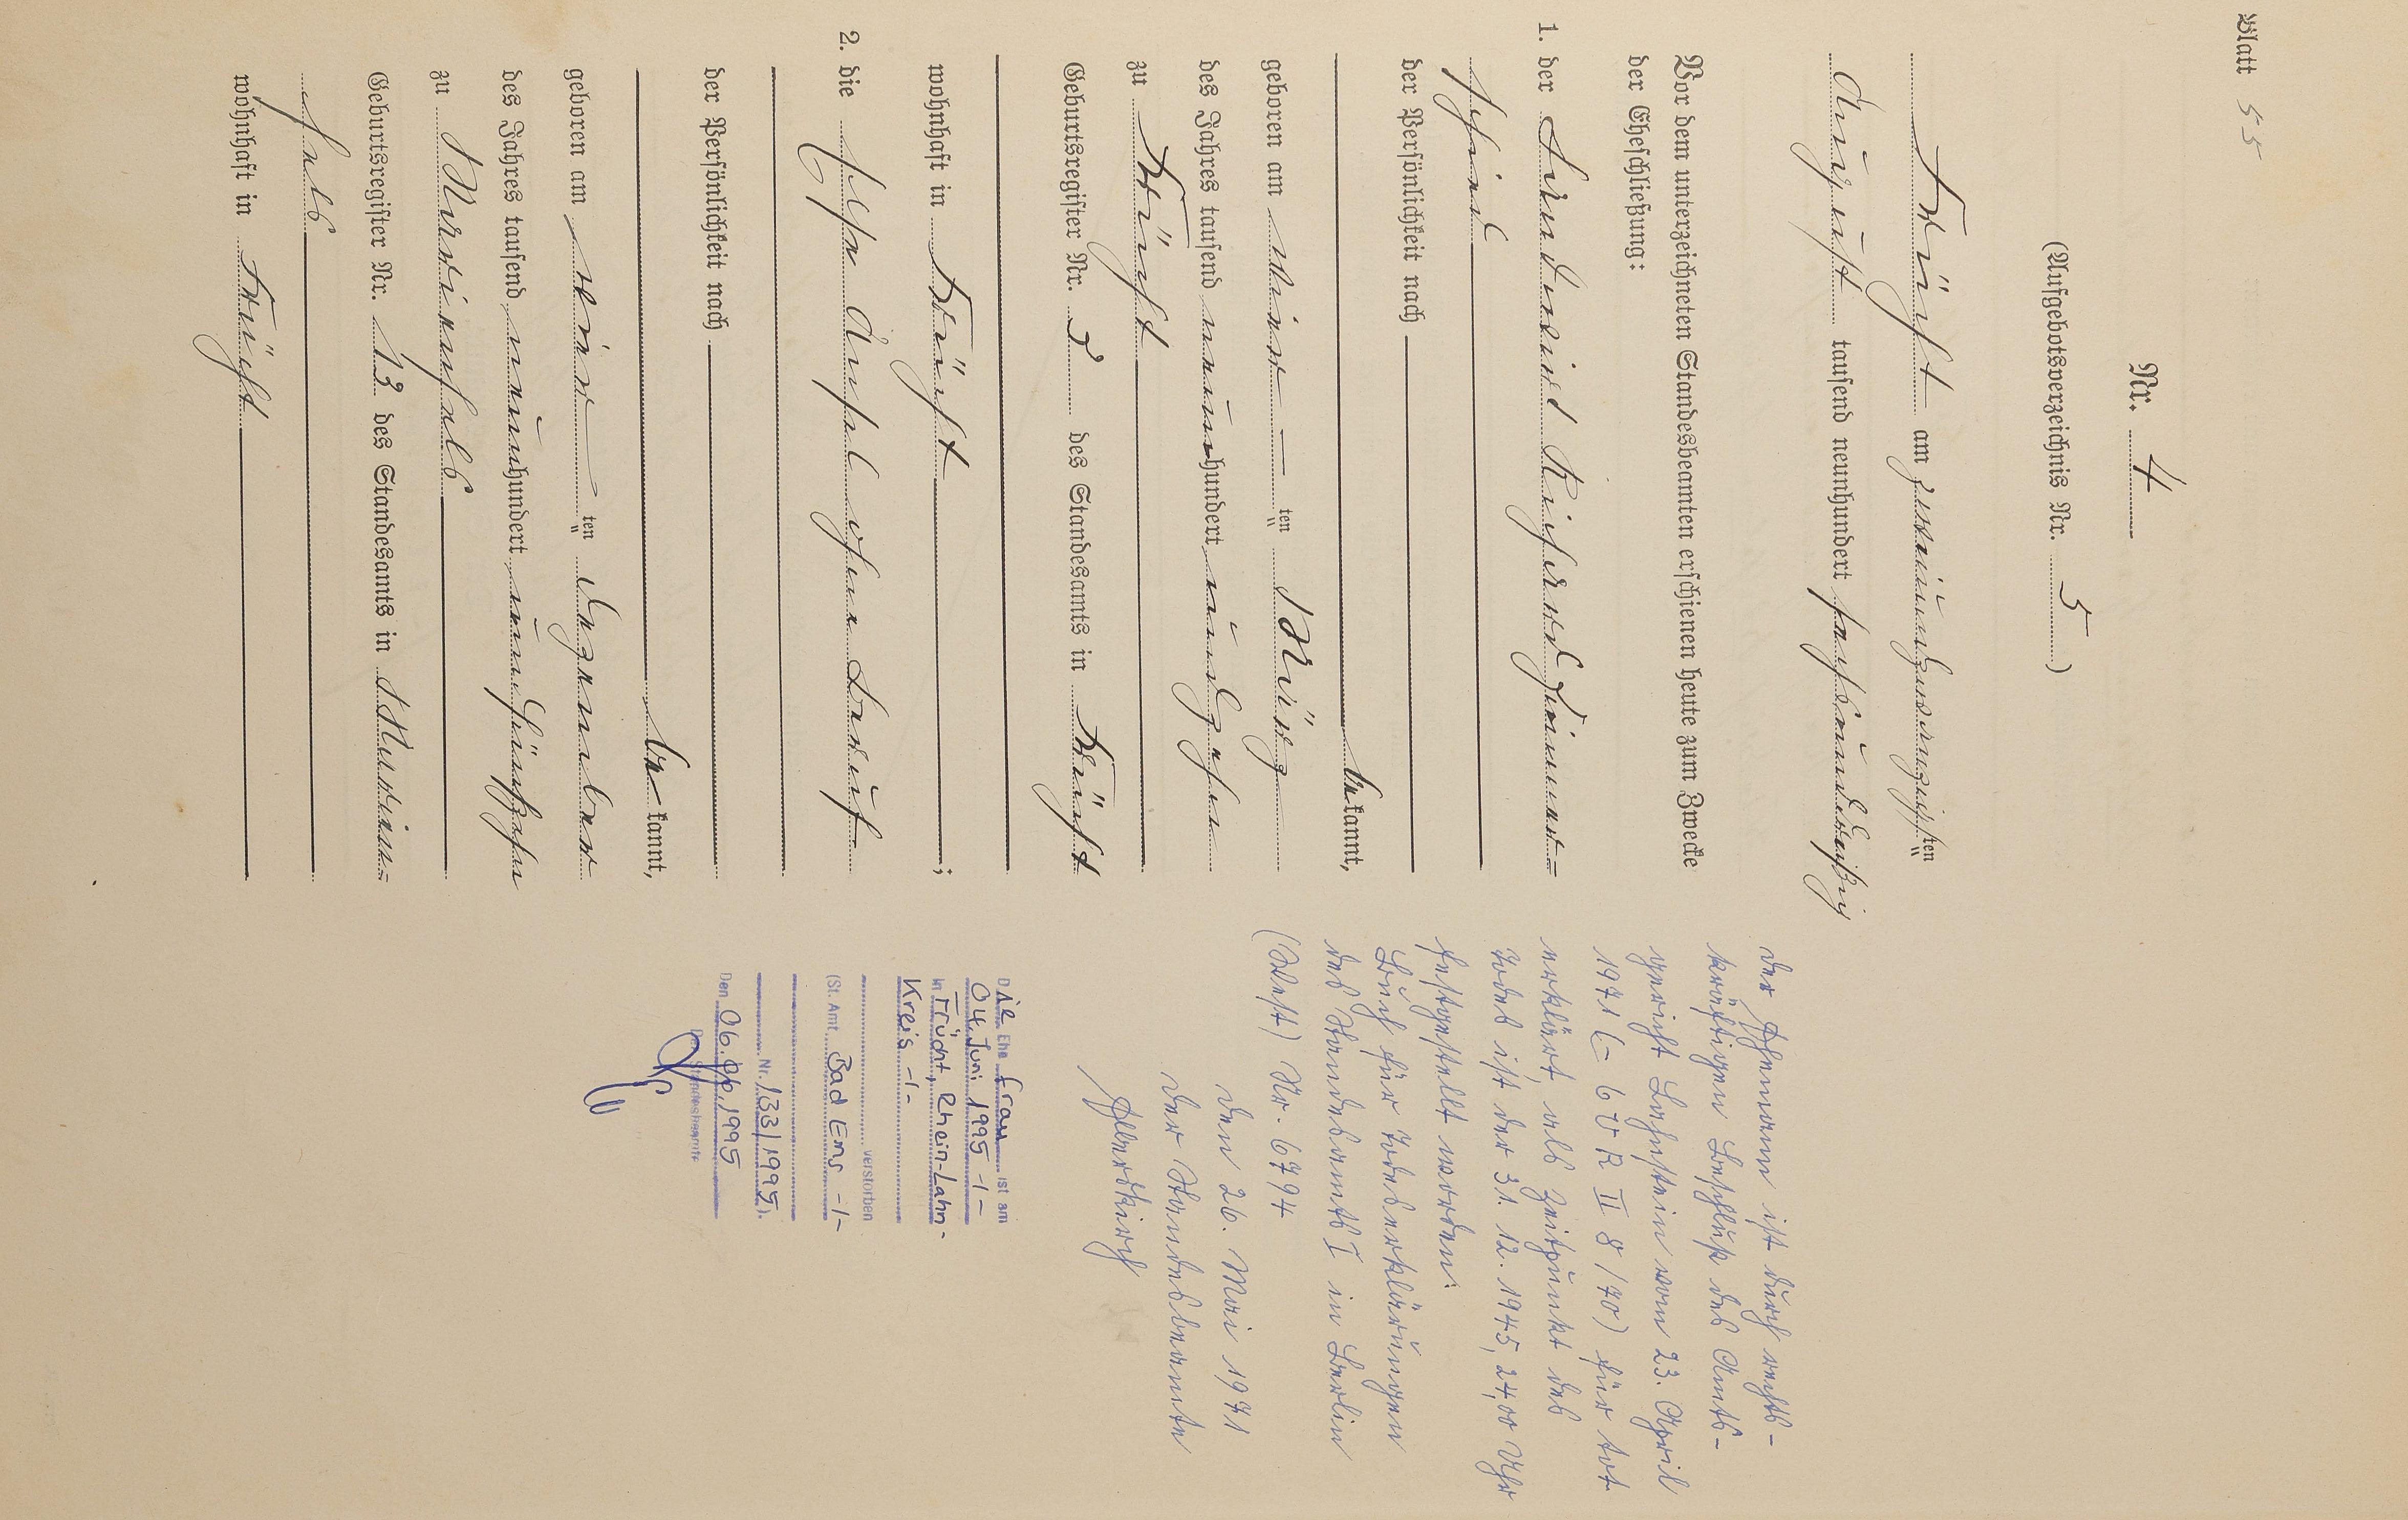 Blatt 55
Nr. 4
(Aufgebotsverzeichnis Nr. 5)
Frücht am zweiundzwanzigsten
August tausend neunhundert sechsunddreißig
Vor dem unterzeichneten Standesbeamten erschienen heute zum Zwecke
der Eheschließung:
1. der Richard
schied
der Persönlichkeit nach
bekannt,
geboren am vier — ten März
des Jahres tausend neunhundert undzehn
zu Frücht
Geburtsregister Nr. 3 des Standesamts in Frücht
wohnhaft in Frücht ;
2. die
der Persönlichkeit nach
bekannt,
geboren am vier — ten Dezember
des Jahres tausend neunhundert undfünfzehn
zu Marienfels
Geburtsregister Nr. 13 des Standesamts in Marien=
fels
wohnhaft in Frücht
Der Ehemann ist durch rechts-
kräftigen Beschluß des Amts-
gericht Lahnstein vom 23. April
1971 (- 6 UR II 8/70) für tot
erklärt, als Zeitpunkt des
Todes ist der 31. 12. 1945, 24,00 Uhr
festgestellt worden.
Buch für Todeserklärungen
des Standesamts I in Berlin
(West) Nr. 6794
den 26. Mai 1971
Der Standesbeamte
Die Ehefrau ist am
04. Juni 1995 -/-
in Frücht, Rhein-Lahn-
Kreis -/-
verstorben
(St. Amt Bad Ems -/-
Nr. 133/1995).
Den 06.06.1995
Der Standesbeamte